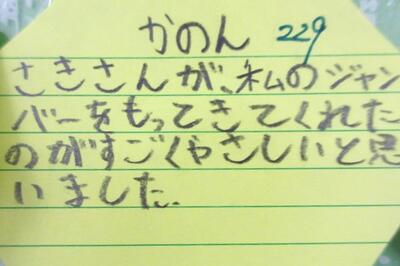 かのん 229
さきさんが、私のジャン
バーをもってきてくれた
のがすごくやさしいと思
いました.